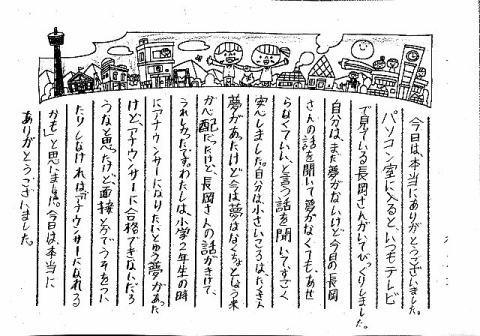 今日は、本当にありがとうございました。
パソコン室に入ると、いつもテレビ
で見ている長岡さんがいてびっくりしました。
自分は、まだ夢がないけど今日の長岡
さんの話を聞いて夢がなくても、あせ
らなくていい、と言う話を聞いてすごく
安心しました。自分は、小さいころは、たくさん
夢があったけど今は夢はなくちょとしょう来
が心配だったけど、長岡さんの話がきけて、
うれしかったです。わたしは、小学2年生の時
にアナウンサーになりたいとゆう夢があった
けど、アナウンサーに合格できないんだろ
うなと思ったけど、面接とかでうそをつい
たりしなければ、アナウンサーになれる
かも」と思いました。今日は、本当に
ありがとうございました。